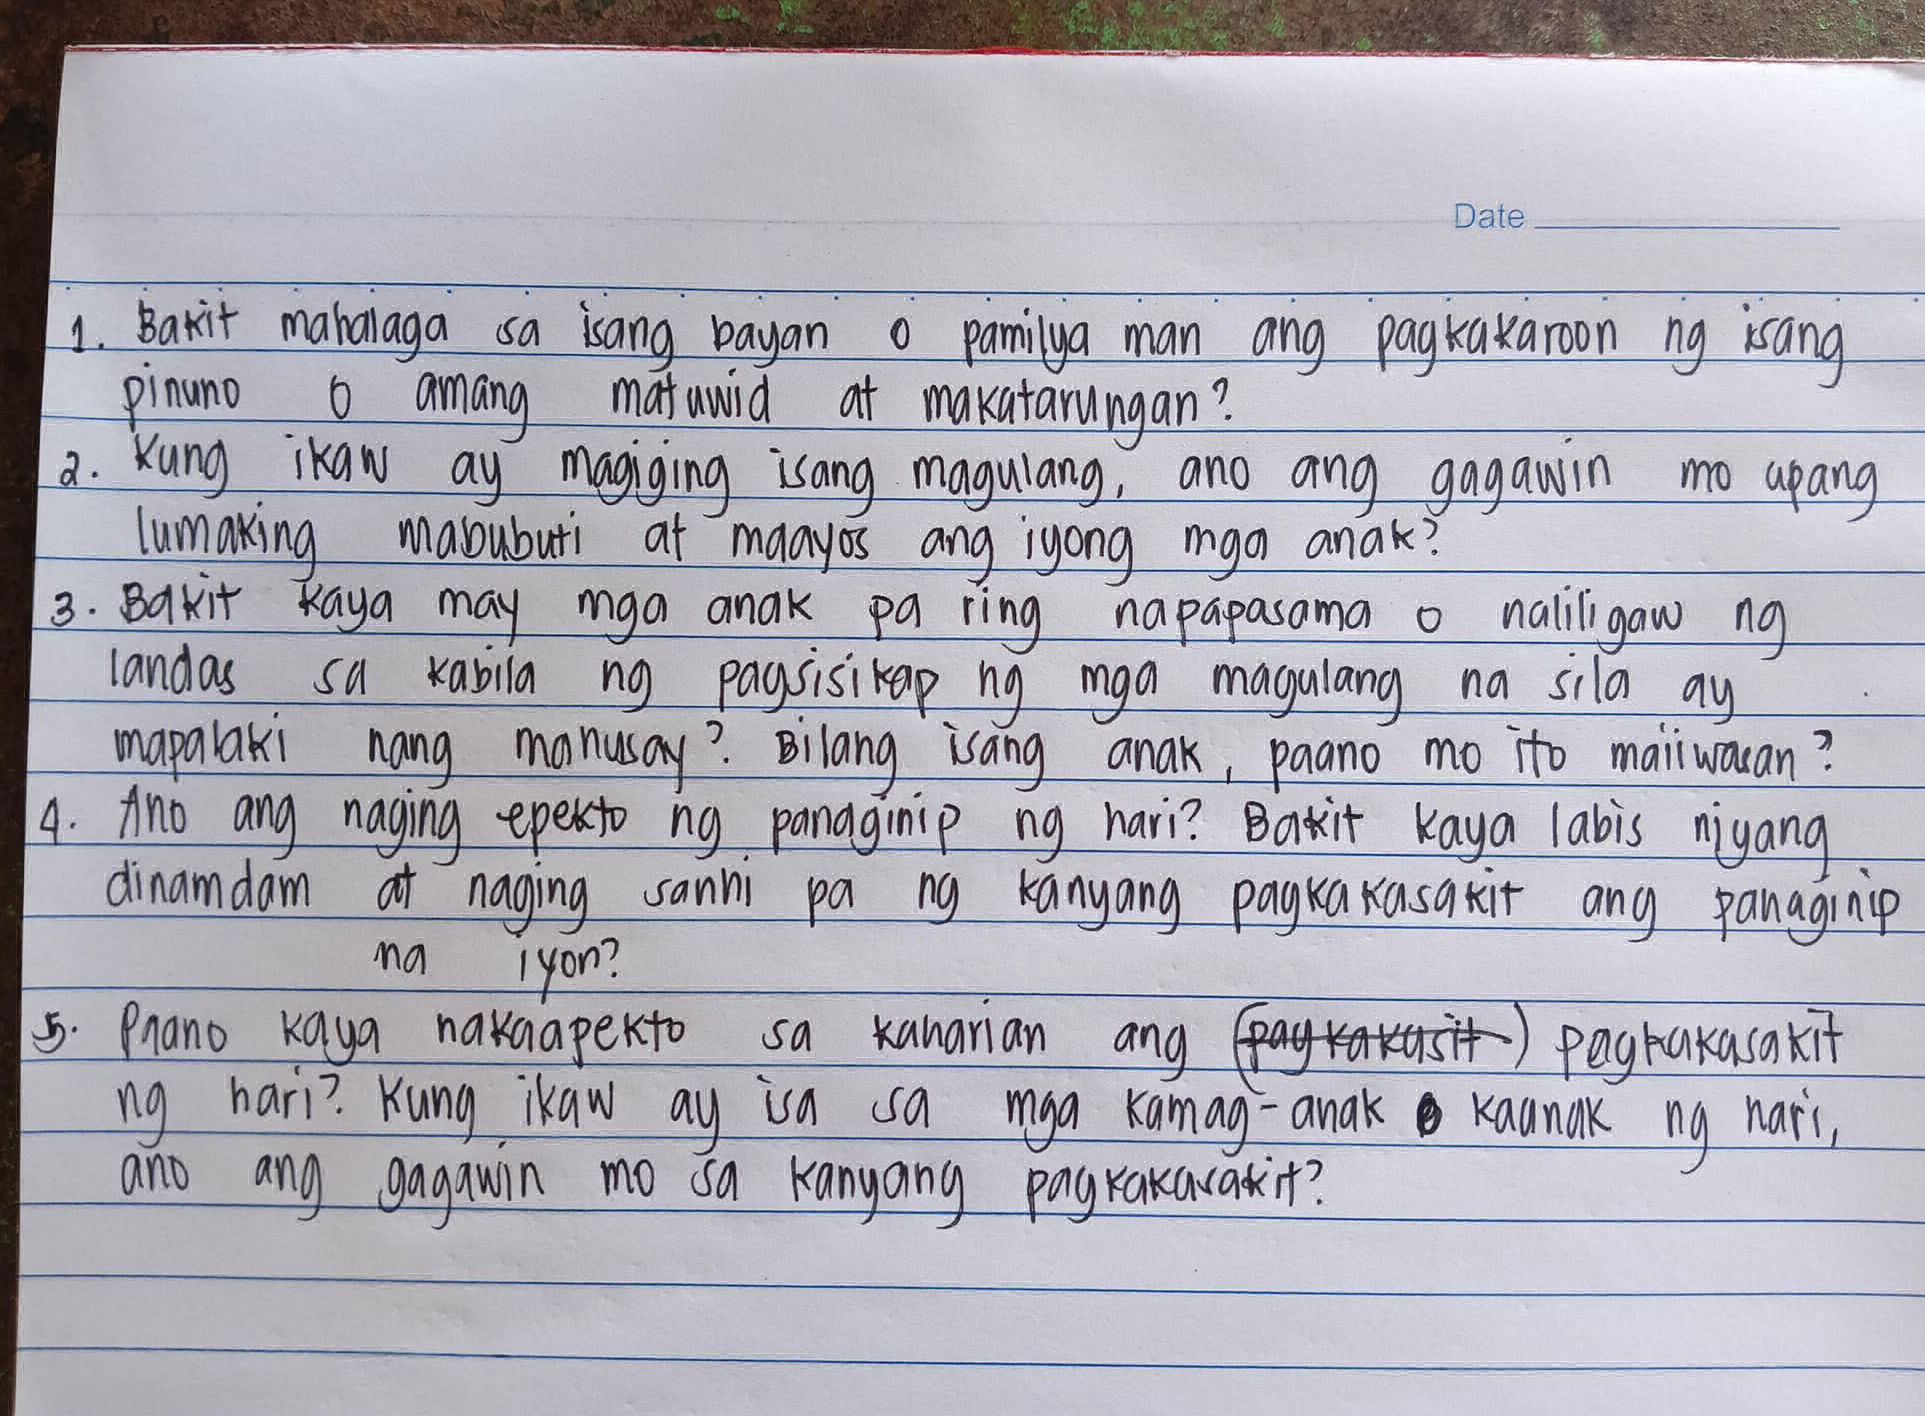 Date
1. Bakit mahalaga sa isang bayan o pamilya man ang pagkakaroon ng isang
pinuno o amang matuwid at makatarungan?
2. Kung ikaw ay magiging isang magulang, ano ang gagawin mo upang
lumaking mabubuti at maayos ang iyong mga anak?
3. Bakit kaya may mga anak pa ring napapasama o naliligaw ng
landas sa kabila ng pagsisikap ng mga magulang na sila ay
mapalaki nang mahusay? Bilang isang anak, paano mo ito maiiwasan?
4. Ano ang naging epekto ng panaginip ng hari? Bakit kaya labis niyang
dinamdam at naging sanhi pa ng kanyang pagkakasakit ang panaginip
na iyon?
5. Paano kaya nakaapekto sa kaharian ang (pagkakasit) pagkakasakit
ng hari? Kung ikaw ay isa sa mga kamag-anak o kaanak ng hari,
ano ang gagawin mo sa kanyang pagkakasakit?